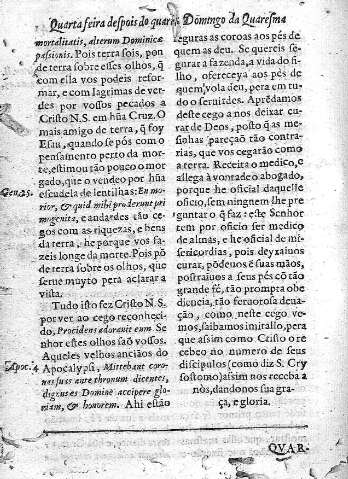 Quarta feira despois do quarto Domingo da Quaresma
mortalitatis, alterum Dominicæ
passionis. Pois terra sois, pon-
de terra sobre esses olhos, q̃
com ella vos podeis refor-
mar, e com lagrimas de ver-
des por vossos pecados a
Cristo N.S. em hũa Cruz. O
mais amigo de terra, q̃ foy
Esau, quando se pós com o
pensamento perto da mor-
te, estimou tão pouco o mor
gado, que o vendeo por hũa
Gen. 25.
escudela de lentilhas: En mo-
rior, & quid mihi proderunt pri
mogenita, e andardes tão ce-
gos com as riquezas, e bens
da terra, he porque vos fa-
zeis longe da morte. Pois põ
de terra sobre os olhos, que
serue muyto pera aclarar a
vista.
Tudo isto fez Cristo N.S.
por ver ao cego reconheci-
do, Procidens adorauit eum. Se
nhor estes olhos saõ vossos.
Aqueles velhos anciãos do
Apoc. 4
Apocalypsi, Mittebant coro-
nas suas ante thronum dicentes,
dignus es Domine accipere glo-
riam, & honorem. Ahi estão
seguras as coroas aos pés de
quem as deu. Se quereis se-
gurar a fazenda, a vida do fi-
lho, oferecey a aos pés de
quem vola deu, pera em tu-
do o seruirdes. Aprẽdamos
deste cego a nos deixar cu-
rar de Deos, posto q̃ as me-
sinhas pareçaõ tão contra-
rias, que vos cegarão como
a terra. Receita o medico, e
allega à vontade o abogado,
porque he oficial daquelle
oficio, sem ninguem lhe pre
guntar o q̃ faz: este Senhor
tem por oficio ser medico
de almas, e he oficial de mi-
sericordias, pois deyxaiuos
curar, põdeuos ẽ suas mãos,
postraiuos a seus pés cõ tão
grande fé, tão prompta obe
diencia, tão feruorosa deua-
ção, como neste cego ve-
mos, saibamos imitallo, pera
que assim como Cristo o re
cebeo no numero de seus
discipulos (como diz S. Cry
sostomo) assim nos receba a
nòs, dandonos sua gra-
ça, e gloria.
QVAR-